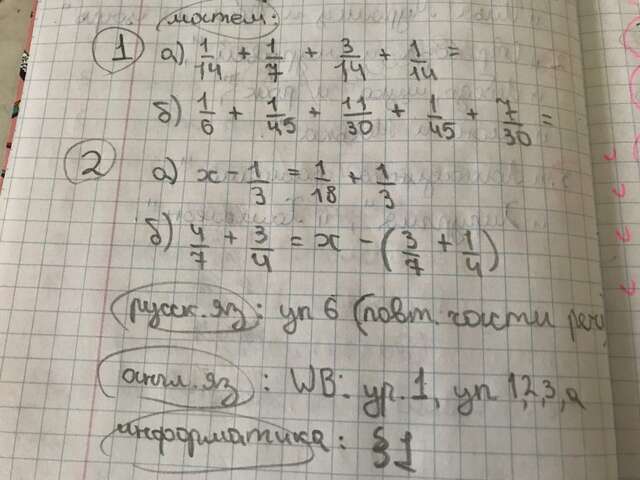 мостем:
1 а) 1/14 + 1/7 + 3/14 + 1/14 =
б) 1/6 + 1/45 + 11/30 + 1/45 + 7/30 =
2 а) x - 1/3 = 1/18 + 1/3
б) 4/7 + 3/4 = x - (3/7 + 1/4)
русск. яз: уп 6 (повт. части речи
англ. яз: WB: ур. 1, уп 1,2,3, а
информатика: § 1